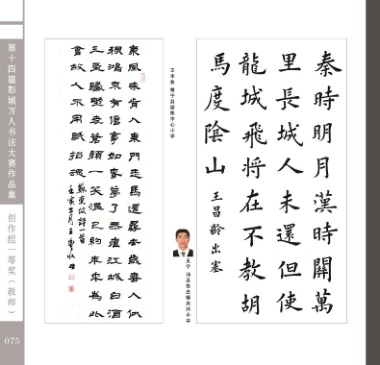 第十四届彭城万人书法大赛作品集
创作组一等奖（教师）
075
秦時明月漢時關萬
里長城人未還但使
龍城飛將在不教胡
馬度陰山
王昌齡出塞
東風未肯入東門走馬還尋去歲村人似
秋鴻來有信事如春夢了無痕江城白酒
三杯釅野老蒼顏一笑溫已約年年為此
會故人不用賦招魂
蘇東坡詩一首